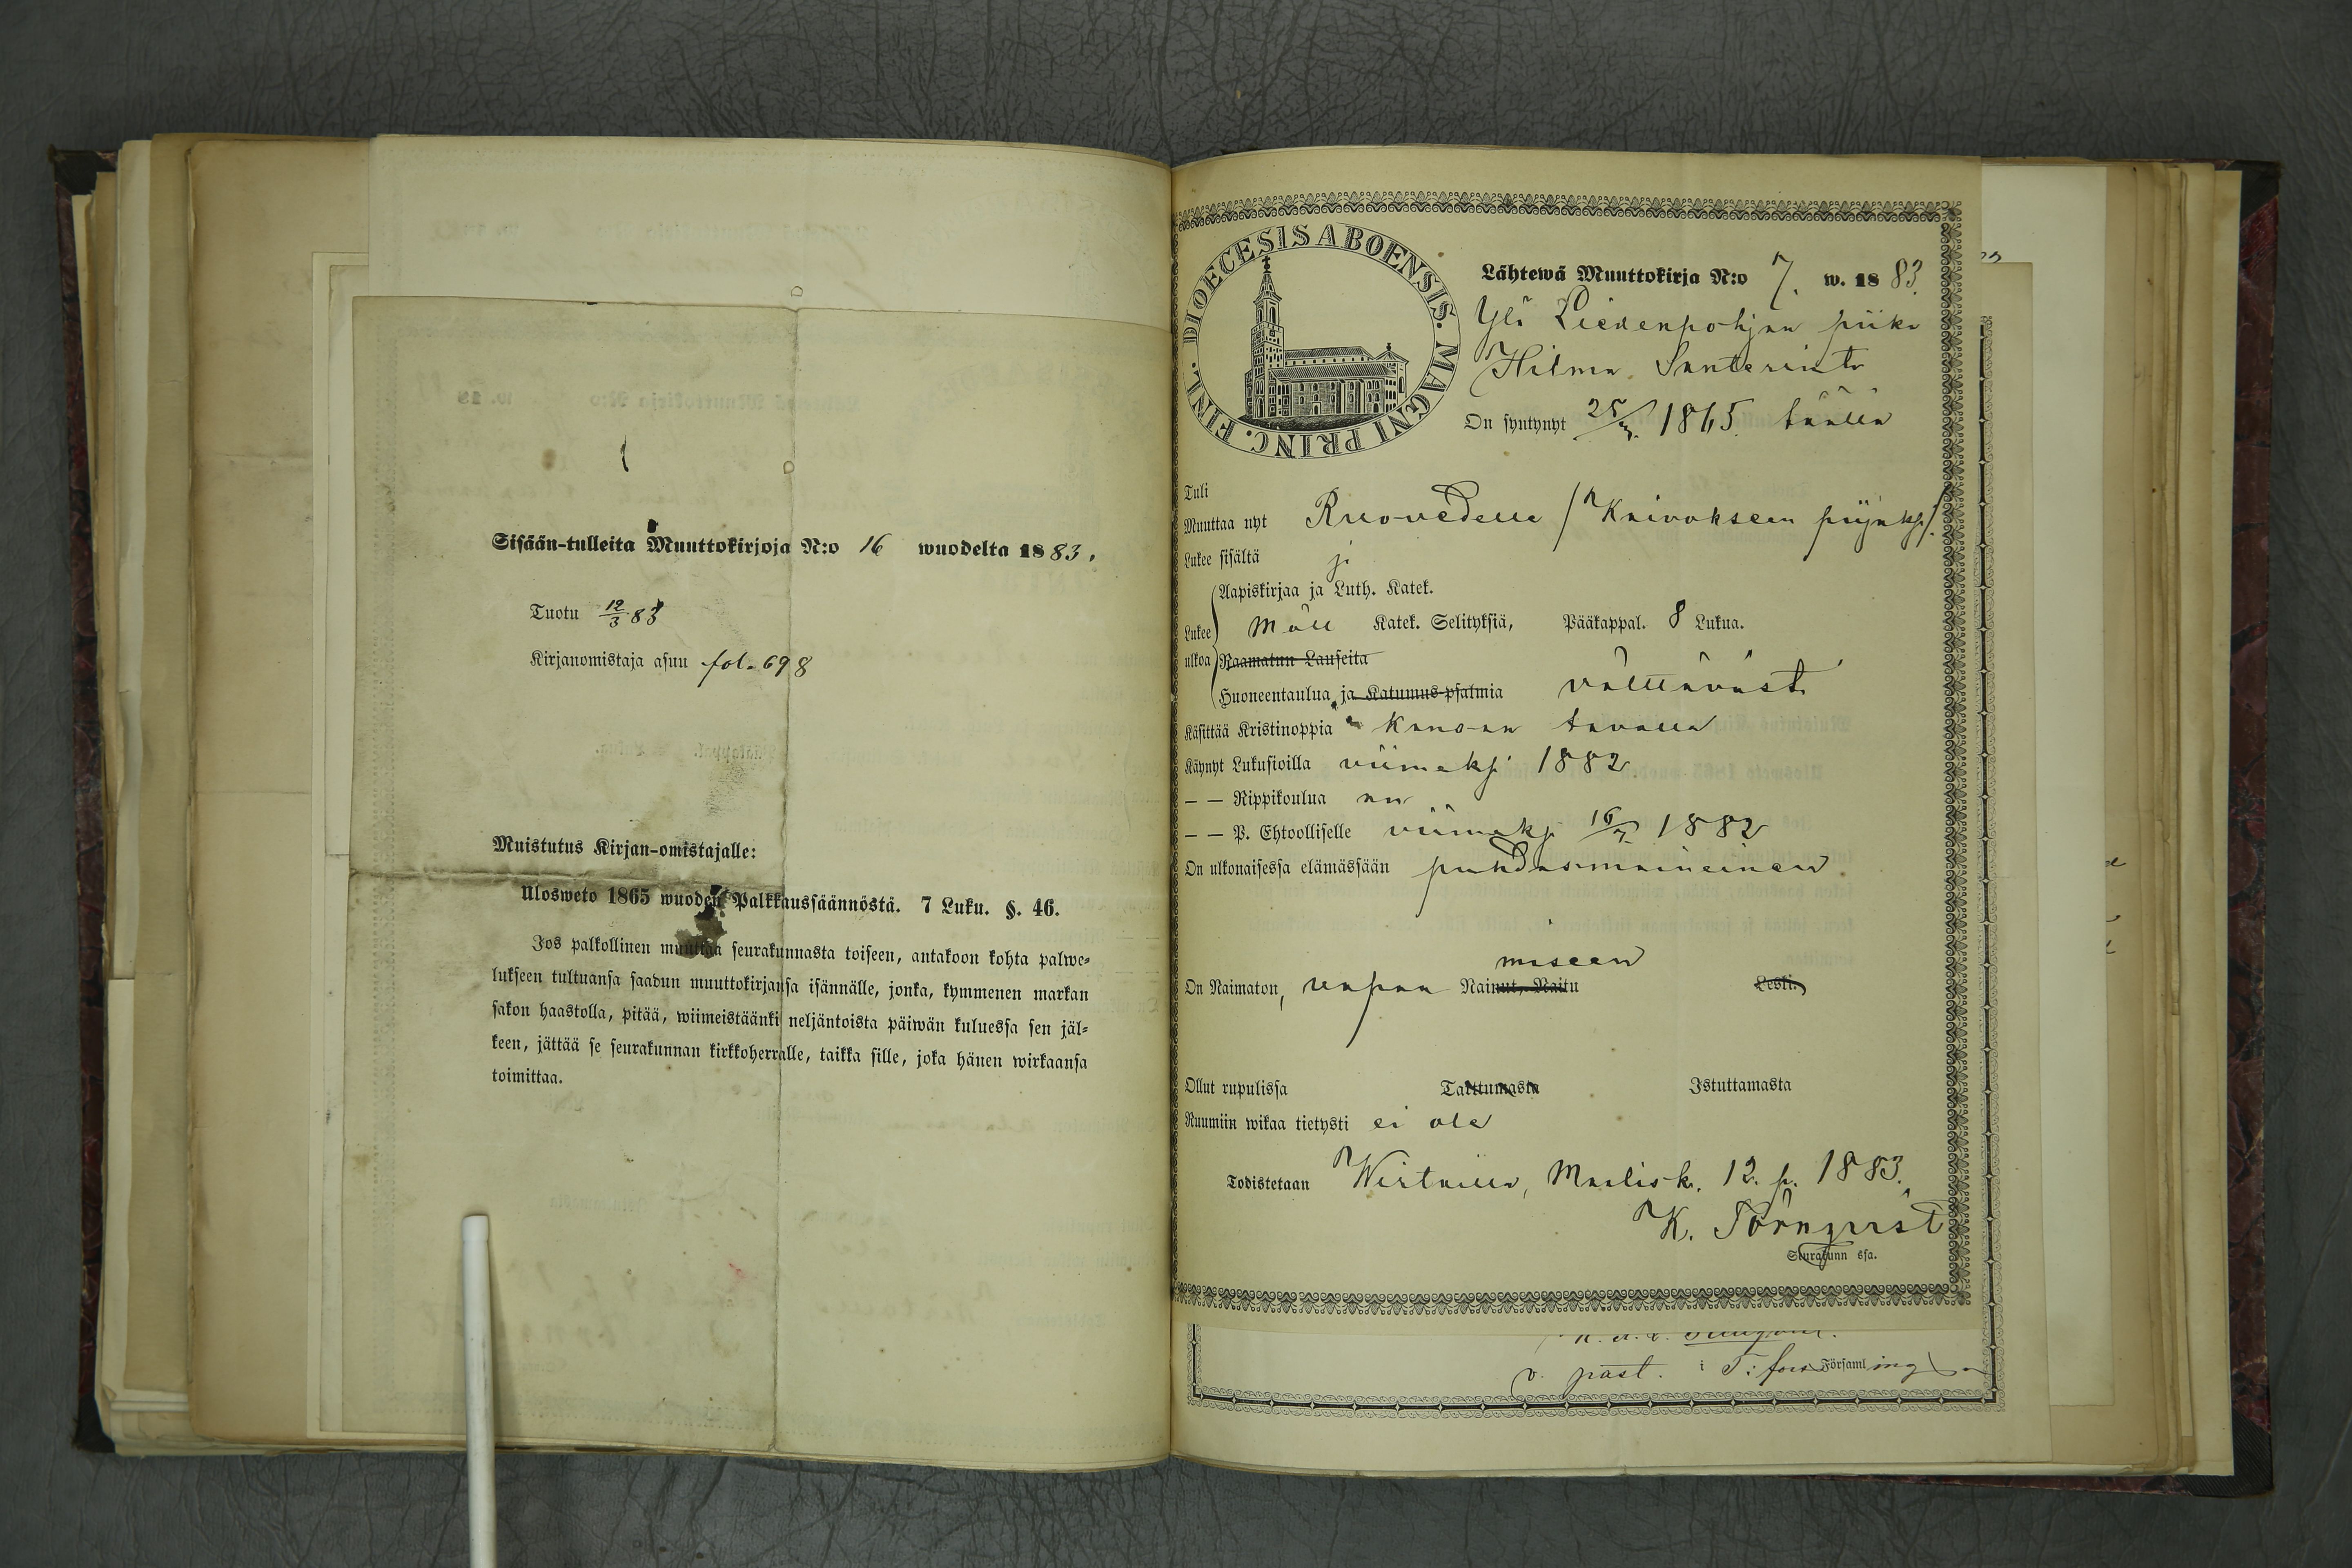 Sisään-tulleita Muuttokirjoja N:o 16 wuodelta 1883.
Tuotu 12/3 83
Kirjanomistaja asuu fol. 698
Muistutus Kirjan-omistajalle:
Ulosweto 1865 wuoden Palkkaussäännöstä. 7 Luku. §. 46.
Jos palkollinen muuttaa seurakunnasta toiseen, antakoon kohta palwe-
lukseen tultuansa saadun muuttokirjansa isännälle, jonka, kymmenen markan
sakon haastolla, pitää, wiimeistäänki neljäntoista päiwän kuluessa sen jäl-
keen, jättää se seurakunnan kirkkoherralle, taikka sille, joka hänen wirkaansa
toimittaa.
DIOECESIS ABOENSIS. MAGNI PRINC. FINL.
Lähtewä Muuttokirja N:o 7. w. 1883.
Yli Liedenpohjan piika
Hilma Santerint.
On syntynyt 25/3. 1865 täällä
Tuli
Muuttaa nyt Ruovedelle / Kaivokseen piijaksi /.
Lukee sisältä
Aapiskirjaa ja Luth. Katek.
Lukee Möll Katek. Selityksiä, Pääkappal. 8 Lukua.
ulkoa Raamatun Lauseita
Huoneentaulua, ja Katumus-psalmia välttävästi
Käsittää Kristinoppia kansan tavalla
Käynyt Lukusioilla viimeksi 1882
— — Rippikoulua on
— — P. Ehtoolliselle viimeksi 16/7 1882
On ulkonaisessa elämässään puhdasmaineinen
miseen
On Naimaton, vapaa Nainut, Naitu Leski.
Ollut rupulissa Tarttumasta Istuttamasta
Ruumiin wikaa tietysti ei ole
Todistetaan Wirtailla, Maalisk. 12. p. 1883.
K. Törnqvist
Seurakunn ssa.
v. past. i T: fors Församling